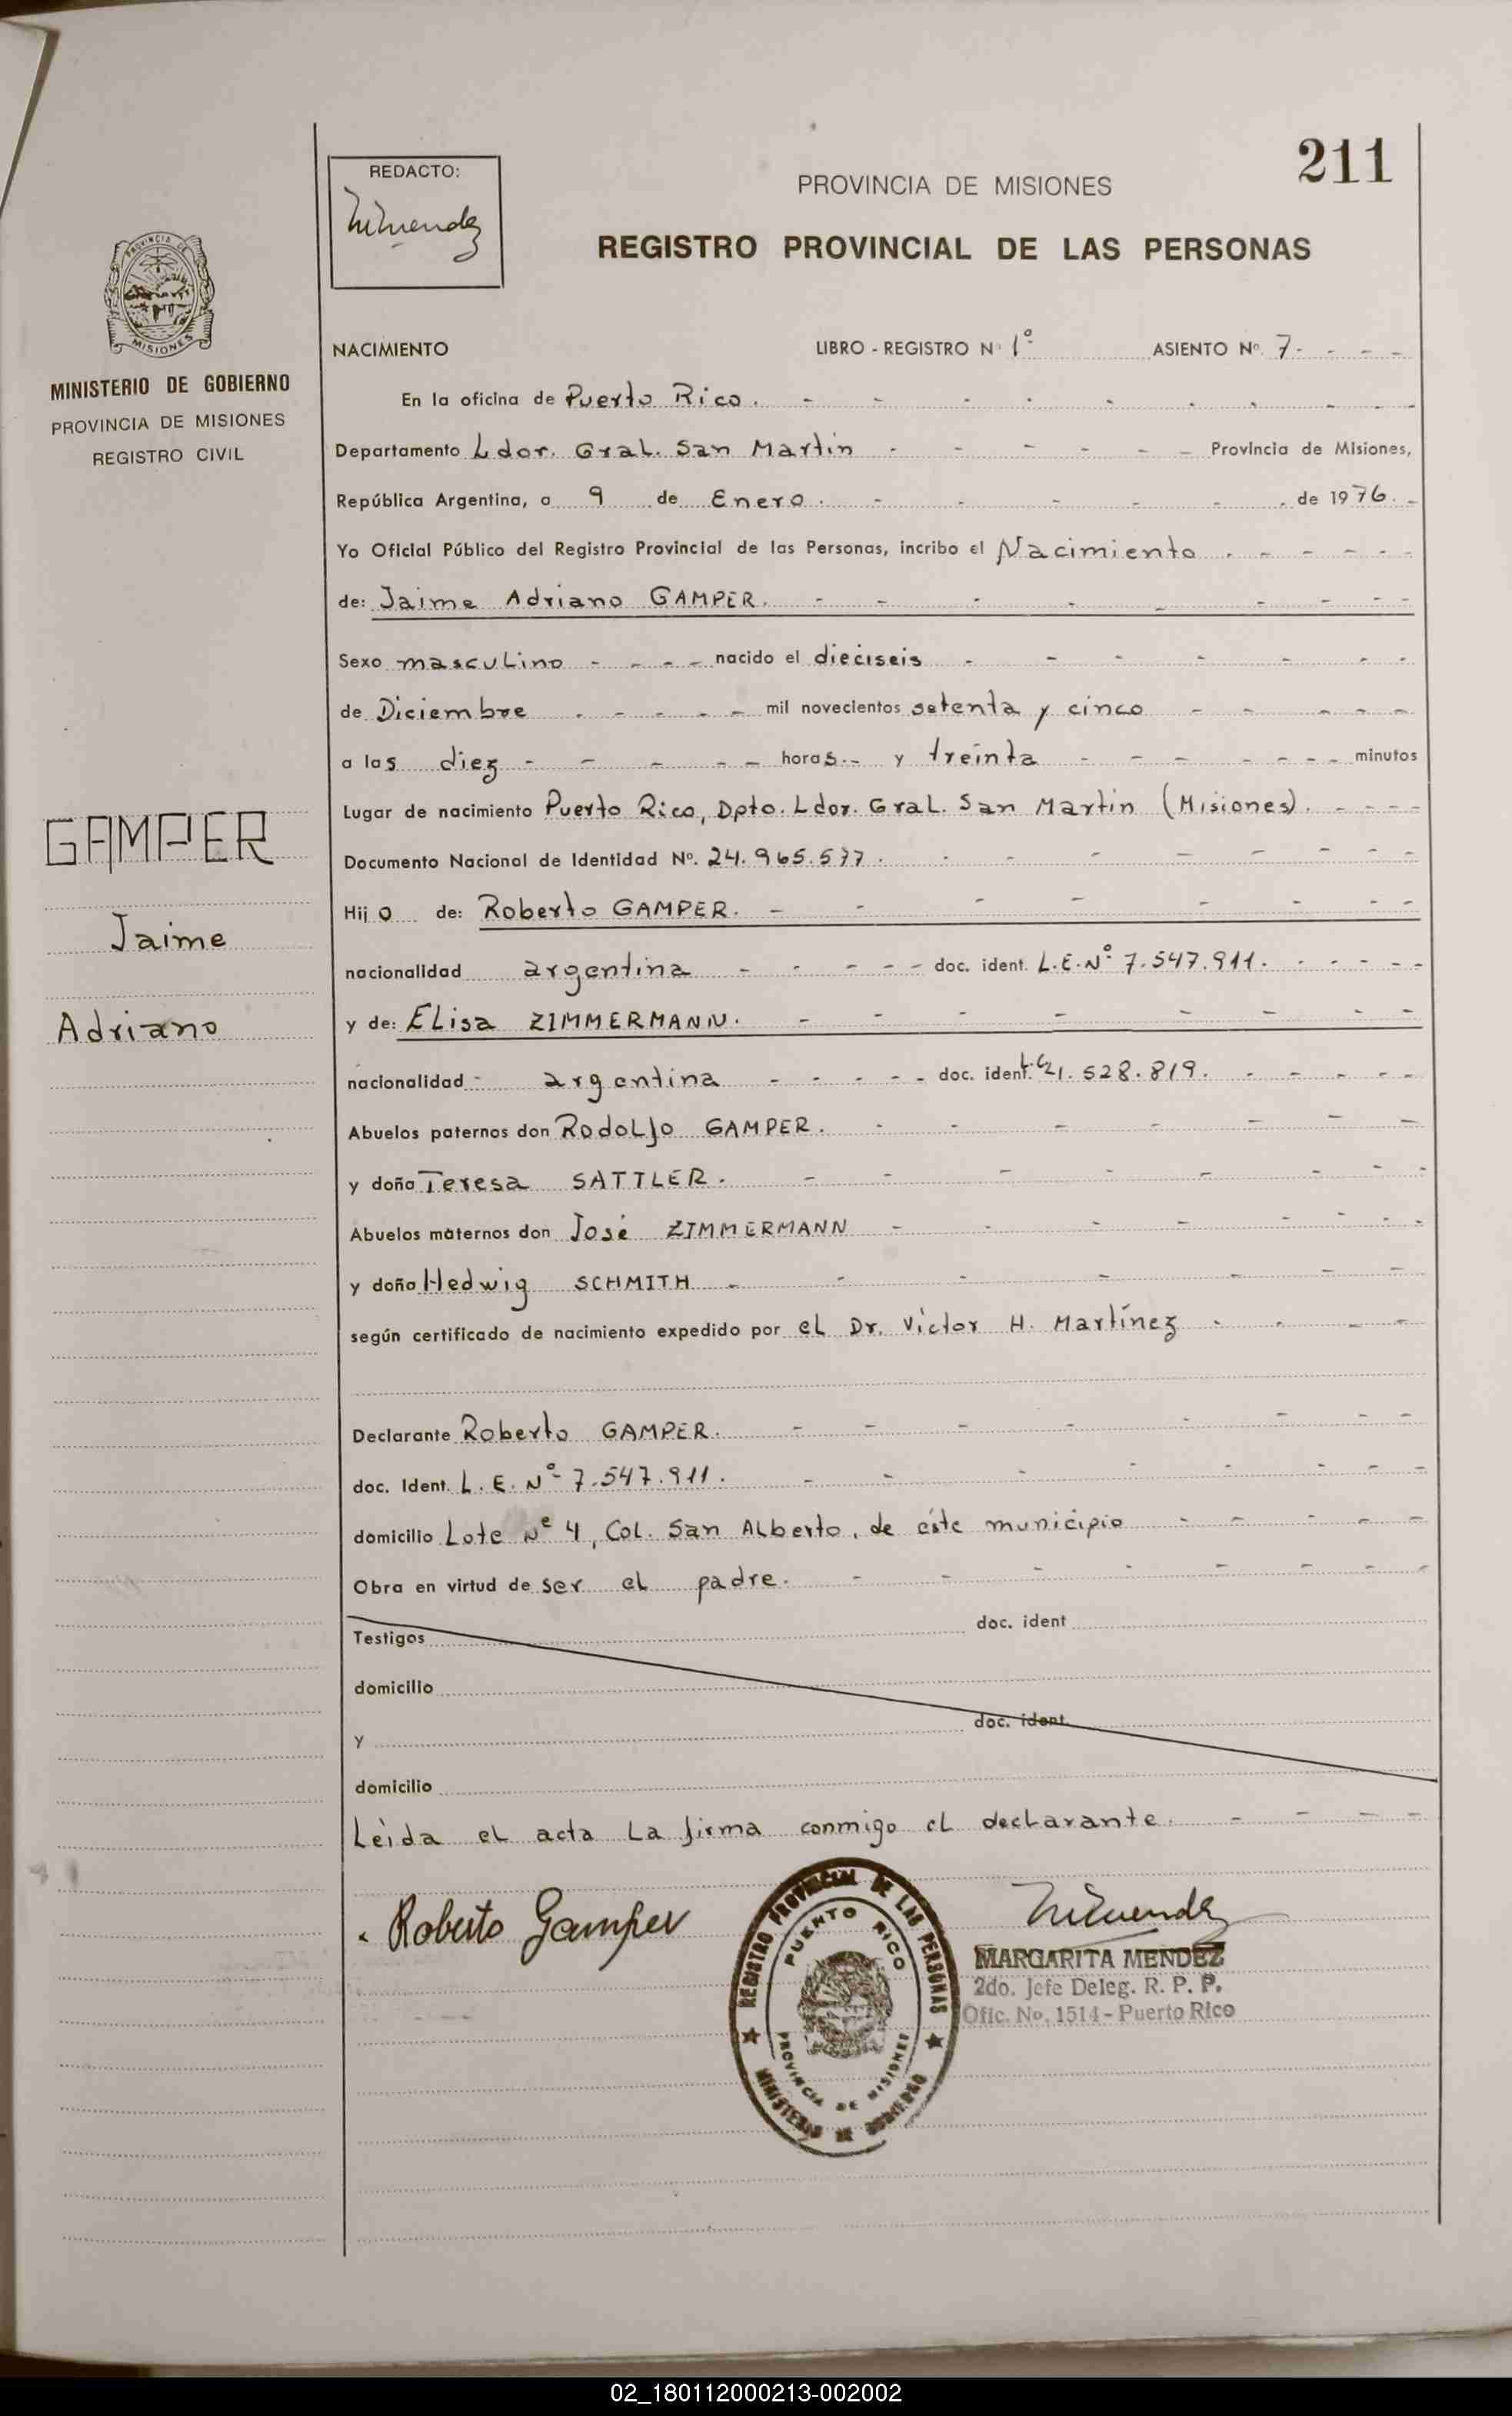 211
REDACTO:
PROVINCIA DE MISIONES
REGISTRO PROVINCIAL DE LAS PERSONAS
PROVINCIA DE
MISIONES
MINISTERIO DE GOBIERNO
PROVINCIA DE MISIONES
REGISTRO CIVIL
NACIMIENTO LIBRO - REGISTRO Nº 1º ASIENTO Nº 7.
En la oficina de Puerto Rico.
Departamento Ldor. Gral. San Martín Provincia de Misiones,
República Argentina, a 9 de Enero. de 1976.
Yo Oficial Público del Registro Provincial de las Personas, incribo el Nacimiento
de: Jaime Adriano GAMPER.
Sexo masculino nacido el dieciseis
de Diciembre mil novecientos setenta y cinco
a las diez horas y treinta minutos
Lugar de nacimiento Puerto Rico, Dpto. Ldor. Gral. San Martín (Misiones).
Documento Nacional de Identidad Nº. 24.965.577.
Hijo de: Roberto GAMPER.
nacionalidad argentina doc. ident. L.E.Nº 7.547.911.
y de: Elisa ZIMMERMANN.
nacionalidad argentina doc. ident. 528.819.
Abuelos paternos don Rodolfo GAMPER.
y doña Teresa SATTLER.
Abuelos maternos don José ZIMMERMANN
y doña Hedwig SCHMITH
según certificado de nacimiento expedido por el Dr. Víctor H. Martínez
Declarante Roberto GAMPER.
doc. Ident. L. E. Nº 7.547.911.
domicilio Lote Nº 4, Col. San Alberto, de éste municipio
Obra en virtud de ser el padre.
Testigos doc. ident
domicilio
y doc. ident
domicilio
Leída el acta la firma conmigo el declarante.
GAMPER
Jaime
Adriano
Roberto Gamper
REGISTRO PROVINCIAL DE LAS PERSONAS
PUERTO RICO
PROVINCIA DE MISIONES
MINISTERIO DE GOBIERNO
MARGARITA MENDEZ
2do. Jefe Deleg. R. P. P.
Ofic. No. 1514 - Puerto Rico
02_180112000213-002002